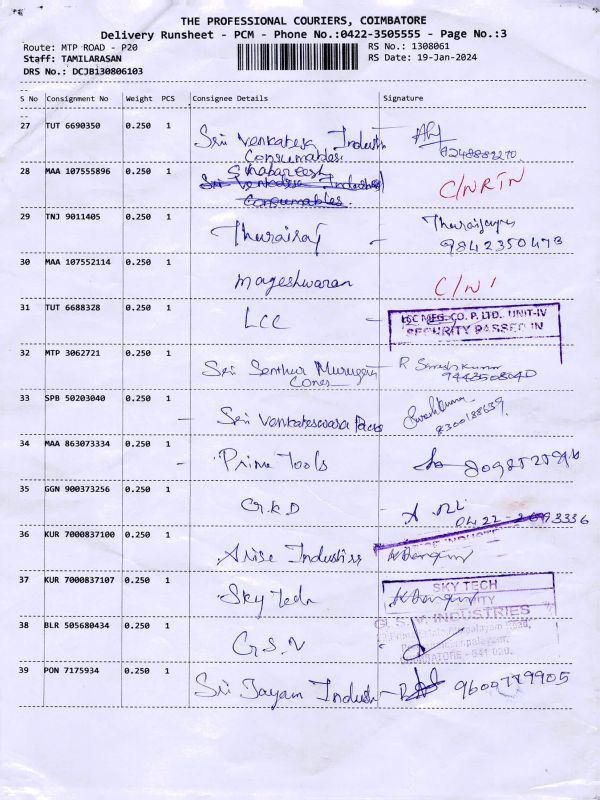 THE PROFESSIONAL COURIERS, COIMBATORE
Delivery Runsheet - PCM - Phone No.:0422-3505555 - Page No.:3
Route: MTP ROAD - P20
RS No.: 1308061
Staff: TAMILARASAN
RS Date: 19-Jan-2024
DRS No.: DCJB130806103
S No Consignment No Weight PCS Consignee Details Signature
27 TUT 6690350 0.250 1 Sri Venkatesh Industri
Consumables
28 MAA 107555896 0.250 1
Consumables.
C/NRTN
29 TNJ 9011405 0.250 1 Thurairaj
9842350473
30 MAA 107552114 0.250 1 Mageshwaran C/N
31 TUT 6688328 0.250 1 LCC
MFG. CO. P. LTD. UNIT-IV
SECURITY PASSED IN
32 MTP 3062721 0.250 1 Sri Senthur Murugan
Cones
R Sureshkumar
33 SPB 50203040 0.250 1 Sri Venkateswara Packs
Sureshkumar
8300188639
34 MAA 863073334 0.250 1 Prime Tools
35 GGN 900373256 0.250 1 G.K.D
0422-
36 KUR 7000837100 0.250 1 Arise Industries
37 KUR 7000837107 0.250 1 Sky Tech
SKY TECH
38 BLR 505680434 0.250 1 G.S.V
G. S. V. INDUSTRIES
39 PON 7175934 0.250 1 Sri Jayam Industri 9600779905